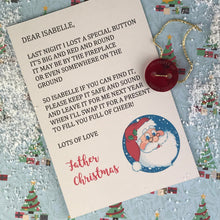 DEAR ISABELLE,
LAST NIGHT I LOST A SPECIAL BUTTON
IT'S BIG AND RED AND ROUND
IT MAY BE BY THE FIREPLACE
OR EVEN SOMEWHERE ON THE
GROUND
SO ISABELLE IF YOU CAN FIND IT,
PLEASE KEEP IT SAFE AND SOUND
AND LEAVE IT FOR ME NEXT YEAR
WHEN I'LL SWAP IT FOR A PRESENT
TO FILL YOU FULL OF CHEER!
LOTS OF LOVE
Father
Christmas